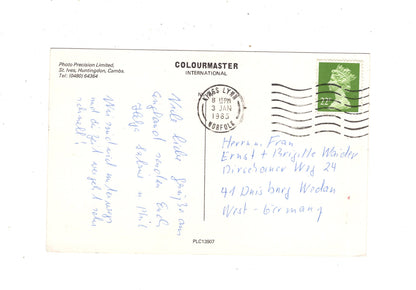 Photo Precision Limited,
St. Ives, Huntingdon, Cambs.
Tel: (0480) 64364
COLOURMASTER
INTERNATIONAL
KINGS LYNN
3 JAN
1985
NORFOLK
22
Viele liebe Grüße aus
England senden Euch
Wir sind viel unterwegs
und die Zeit vergeht sehr
schnell!
Herrn u. Frau
Ernst + Brigitte Waider
Dirschauer Weg 24
41 Duisburg Wedau
West-Germany
PLC13907